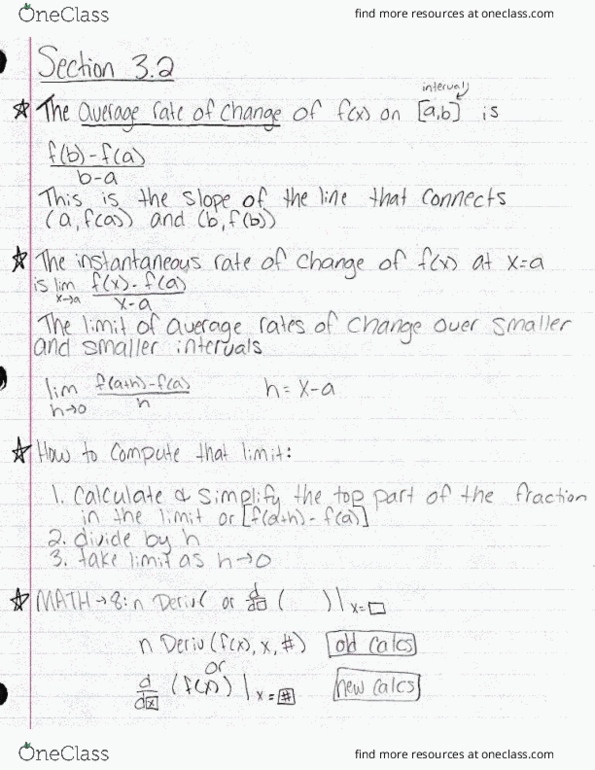 OneClass
find more resources at oneclass.com
Section 3.2
interval
☆ The average rate of change of f(x) on [a,b] is
f(b)-f(a)
b-a
This is the slope of the line that connects
(a, f(a)) and (b, f(b))
☆ The instantaneous rate of change of f(x) at x=a
is lim f(x)-f(a)
x→a x-a
The limit of average rates of change over smaller
and smaller intervals
lim f(a+h)-f(a) h = x-a
h→0 h
☆ How to compute that limit:
1. Calculate & simplify the top part of the fraction
in the limit or [f(a+h)-f(a)]
2. divide by h
3. take limit as h→0
☆ MATH→8:nDeriv( or d/d□ ( )|x=□
nDeriv(f(x), x, #) old calcs
or
d/dx (f(x))|x=# new calcs
OneClass
find more resources at oneclass.com